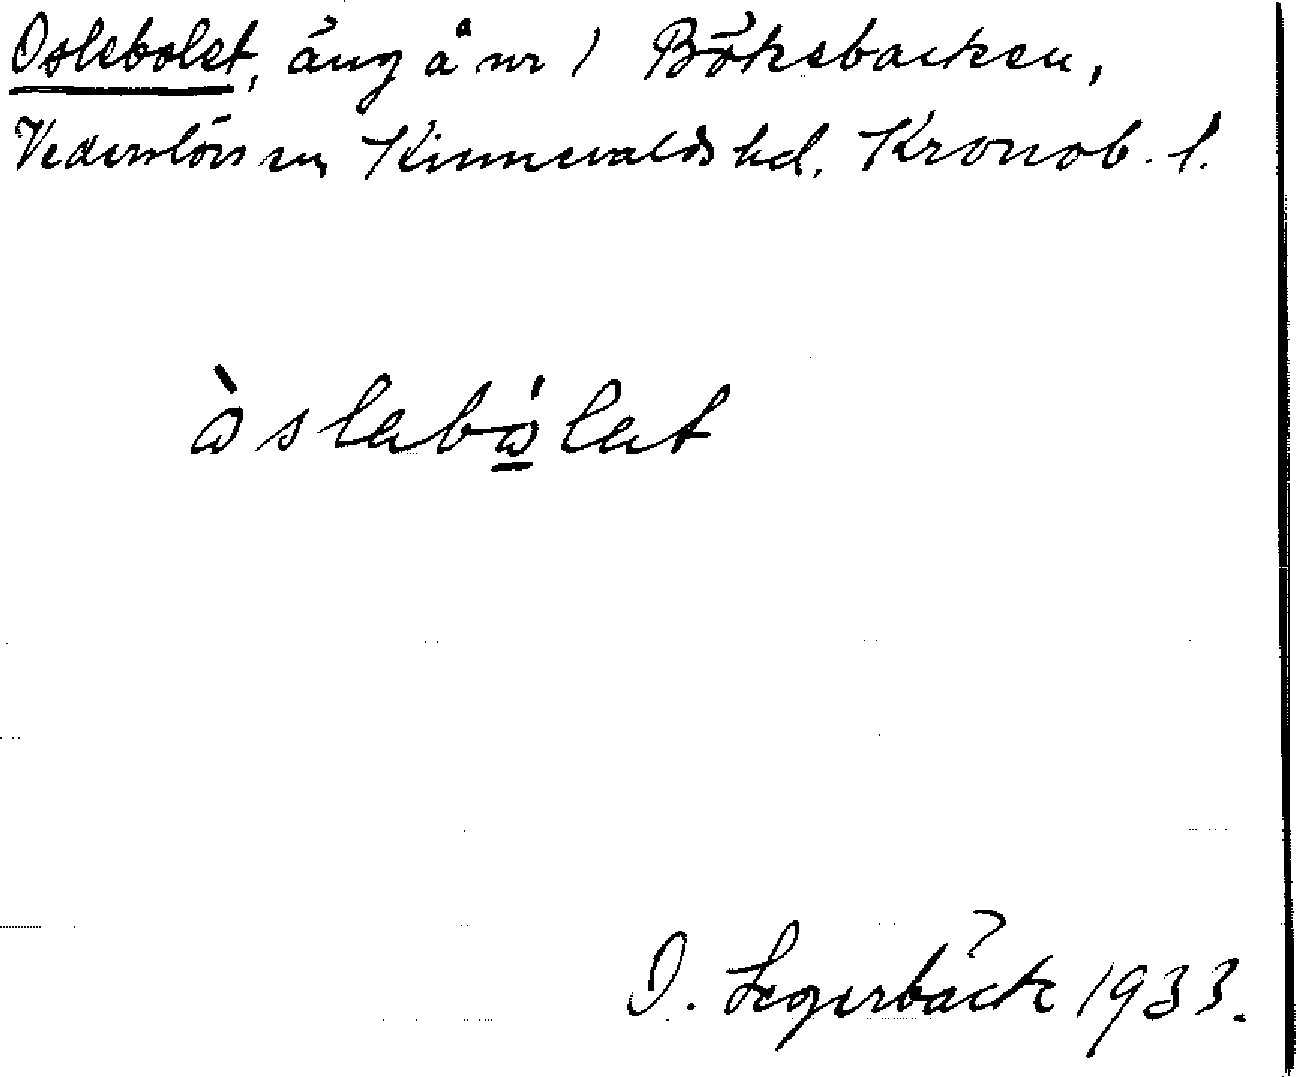 Oslebolet, äng å nr 1 Böksbacken,
Vederslövs sn, Kinnevalds hd. Kronob. l.
òslabólat
O. Segerbäck 1933.